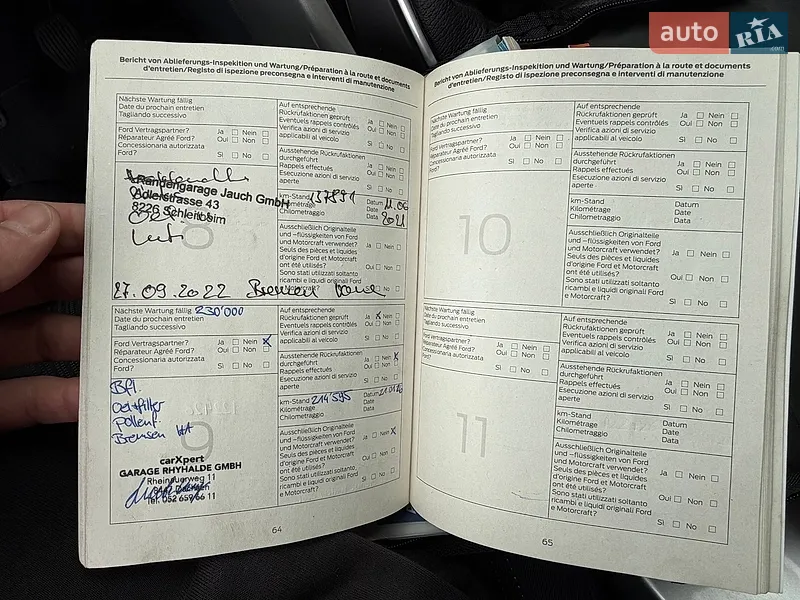 auto RIA.com
Bericht von Ablieferungs-Inspektion und Wartung/Préparation à la route et documents
d'entretien/Registo di ispezione preconsegna e interventi di manutenzione
Nächste Wartung fällig
Date du prochain entretien
Tagliando successivo
Ford Vertragspartner? Ja Nein
Réparateur Agréé Ford? Oui Non
Concessionaria autorizzata
Ford? Sì No
Auf entsprechende
Rückrufaktionen geprüft Ja Nein
Eventuels rappels contrôlés Oui Non
Verifica azioni di servizio
applicabili al veicolo Sì No
Ausstehende Rückrufaktionen
durchgeführt Ja Nein
Rappels effectués Oui Non
Esecuzione azioni di servizio
aperte Sì No
Randengarage Jauch GmbH
Adlerstrasse 43
8226 Schleitheim
8
km-Stand 157891 Datum 11.06
Kilométrage Date 2021
Chilometraggio Data
Ausschließlich Originalteile
und -flüssigkeiten von Ford
und Motorcraft verwendet? Ja Nein
Seuls des pièces et liquides
d'origine Ford et Motorcraft
ont été utilisés? Oui Non
Sono stati utilizzati soltanto
ricambi e liquidi originali Ford
e Motorcraft? Sì No
27.09.2022 Bremsen
Nächste Wartung fällig 230'000
Date du prochain entretien
Tagliando successivo
Ford Vertragspartner? Ja Nein X
Réparateur Agréé Ford? Oui Non
Concessionaria autorizzata
Ford? Sì No
Auf entsprechende
Rückrufaktionen geprüft Ja X Nein
Eventuels rappels contrôlés Oui Non
Verifica azioni di servizio
applicabili al veicolo Sì No
Ausstehende Rückrufaktionen
durchgeführt Ja Nein X
Rappels effectués Oui Non
Esecuzione azioni di servizio
aperte Sì No
Bfl.
Oelfilter
Pollenf.
Bremsen HA
9
carXpert
GARAGE RHYHALDE GMBH
Rheinuferweg 11
Tel. 052 659 66 11
km-Stand 214'595 Datum
Kilométrage Date
Chilometraggio Data
Ausschließlich Originalteile
und -flüssigkeiten von Ford
und Motorcraft verwendet? Ja Nein X
Seuls des pièces et liquides
d'origine Ford et Motorcraft
ont été utilisés? Oui Non
Sono stati utilizzati soltanto
ricambi e liquidi originali Ford
e Motorcraft? Sì No
64
Bericht von Ablieferungs-Inspektion und Wartung/Préparation à la route et documents
d'entretien/Registo di ispezione preconsegna e interventi di manutenzione
Nächste Wartung fällig
Date du prochain entretien
Tagliando successivo
Ford Vertragspartner? Ja Nein
Réparateur Agréé Ford? Oui Non
Concessionaria autorizzata
Ford? Sì No
Auf entsprechende
Rückrufaktionen geprüft Ja Nein
Eventuels rappels contrôlés Oui Non
Verifica azioni di servizio
applicabili al veicolo Sì No
Ausstehende Rückrufaktionen
durchgeführt Ja Nein
Rappels effectués Oui Non
Esecuzione azioni di servizio
aperte Sì No
10
km-Stand Datum
Kilométrage Date
Chilometraggio Data
Ausschließlich Originalteile
und -flüssigkeiten von Ford
und Motorcraft verwendet? Ja Nein
Seuls des pièces et liquides
d'origine Ford et Motorcraft
ont été utilisés? Oui Non
Sono stati utilizzati soltanto
ricambi e liquidi originali Ford
e Motorcraft? Sì No
Nächste Wartung fällig
Date du prochain entretien
Tagliando successivo
Ford Vertragspartner? Ja Nein
Réparateur Agréé Ford? Oui Non
Concessionaria autorizzata
Ford? Sì No
Auf entsprechende
Rückrufaktionen geprüft Ja Nein
Eventuels rappels contrôlés Oui Non
Verifica azioni di servizio
applicabili al veicolo Sì No
Ausstehende Rückrufaktionen
durchgeführt Ja Nein
Rappels effectués Oui Non
Esecuzione azioni di servizio
aperte Sì No
11
km-Stand Datum
Kilométrage Date
Chilometraggio Data
Ausschließlich Originalteile
und -flüssigkeiten von Ford
und Motorcraft verwendet? Ja Nein
Seuls des pièces et liquides
d'origine Ford et Motorcraft
ont été utilisés? Oui Non
Sono stati utilizzati soltanto
ricambi e liquidi originali Ford
e Motorcraft? Sì No
65